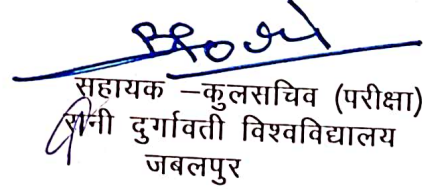 सहायक –कुलसचिव (परीक्षा)
रानी दुर्गावती विश्वविद्यालय
जबलपुर